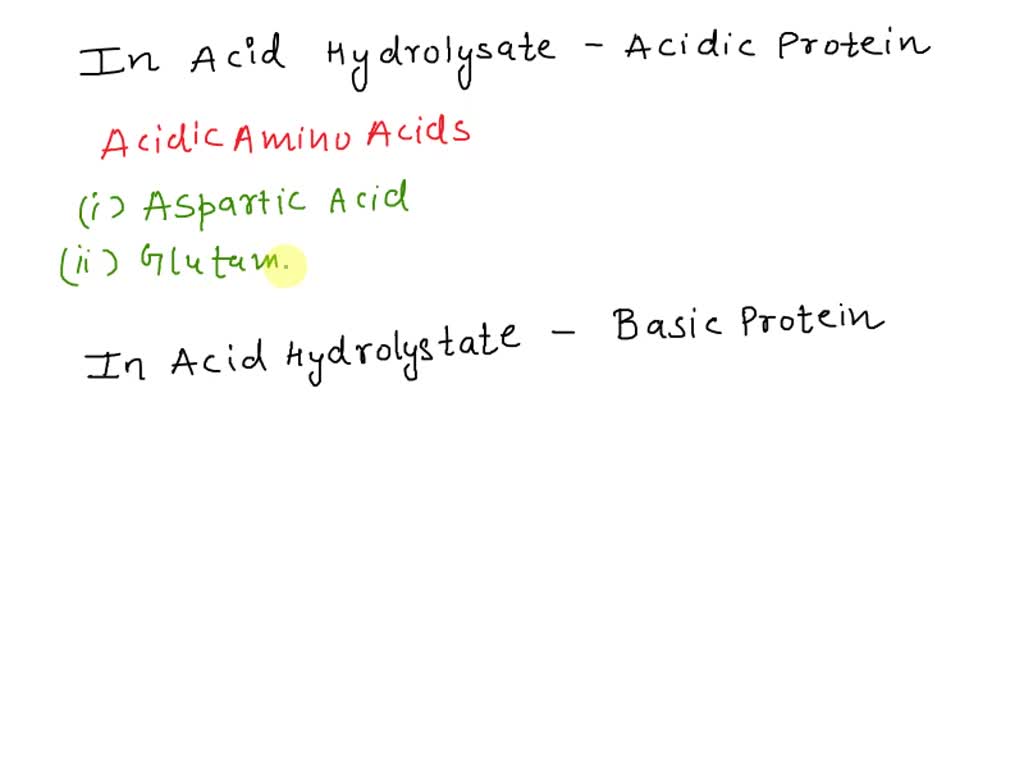 In Acid Hydrolysate - Acidic Protein
Acidic Amino Acids
(i) Aspartic Acid
(ii) Glutam.
In Acid Hydrolystate - Basic Protein